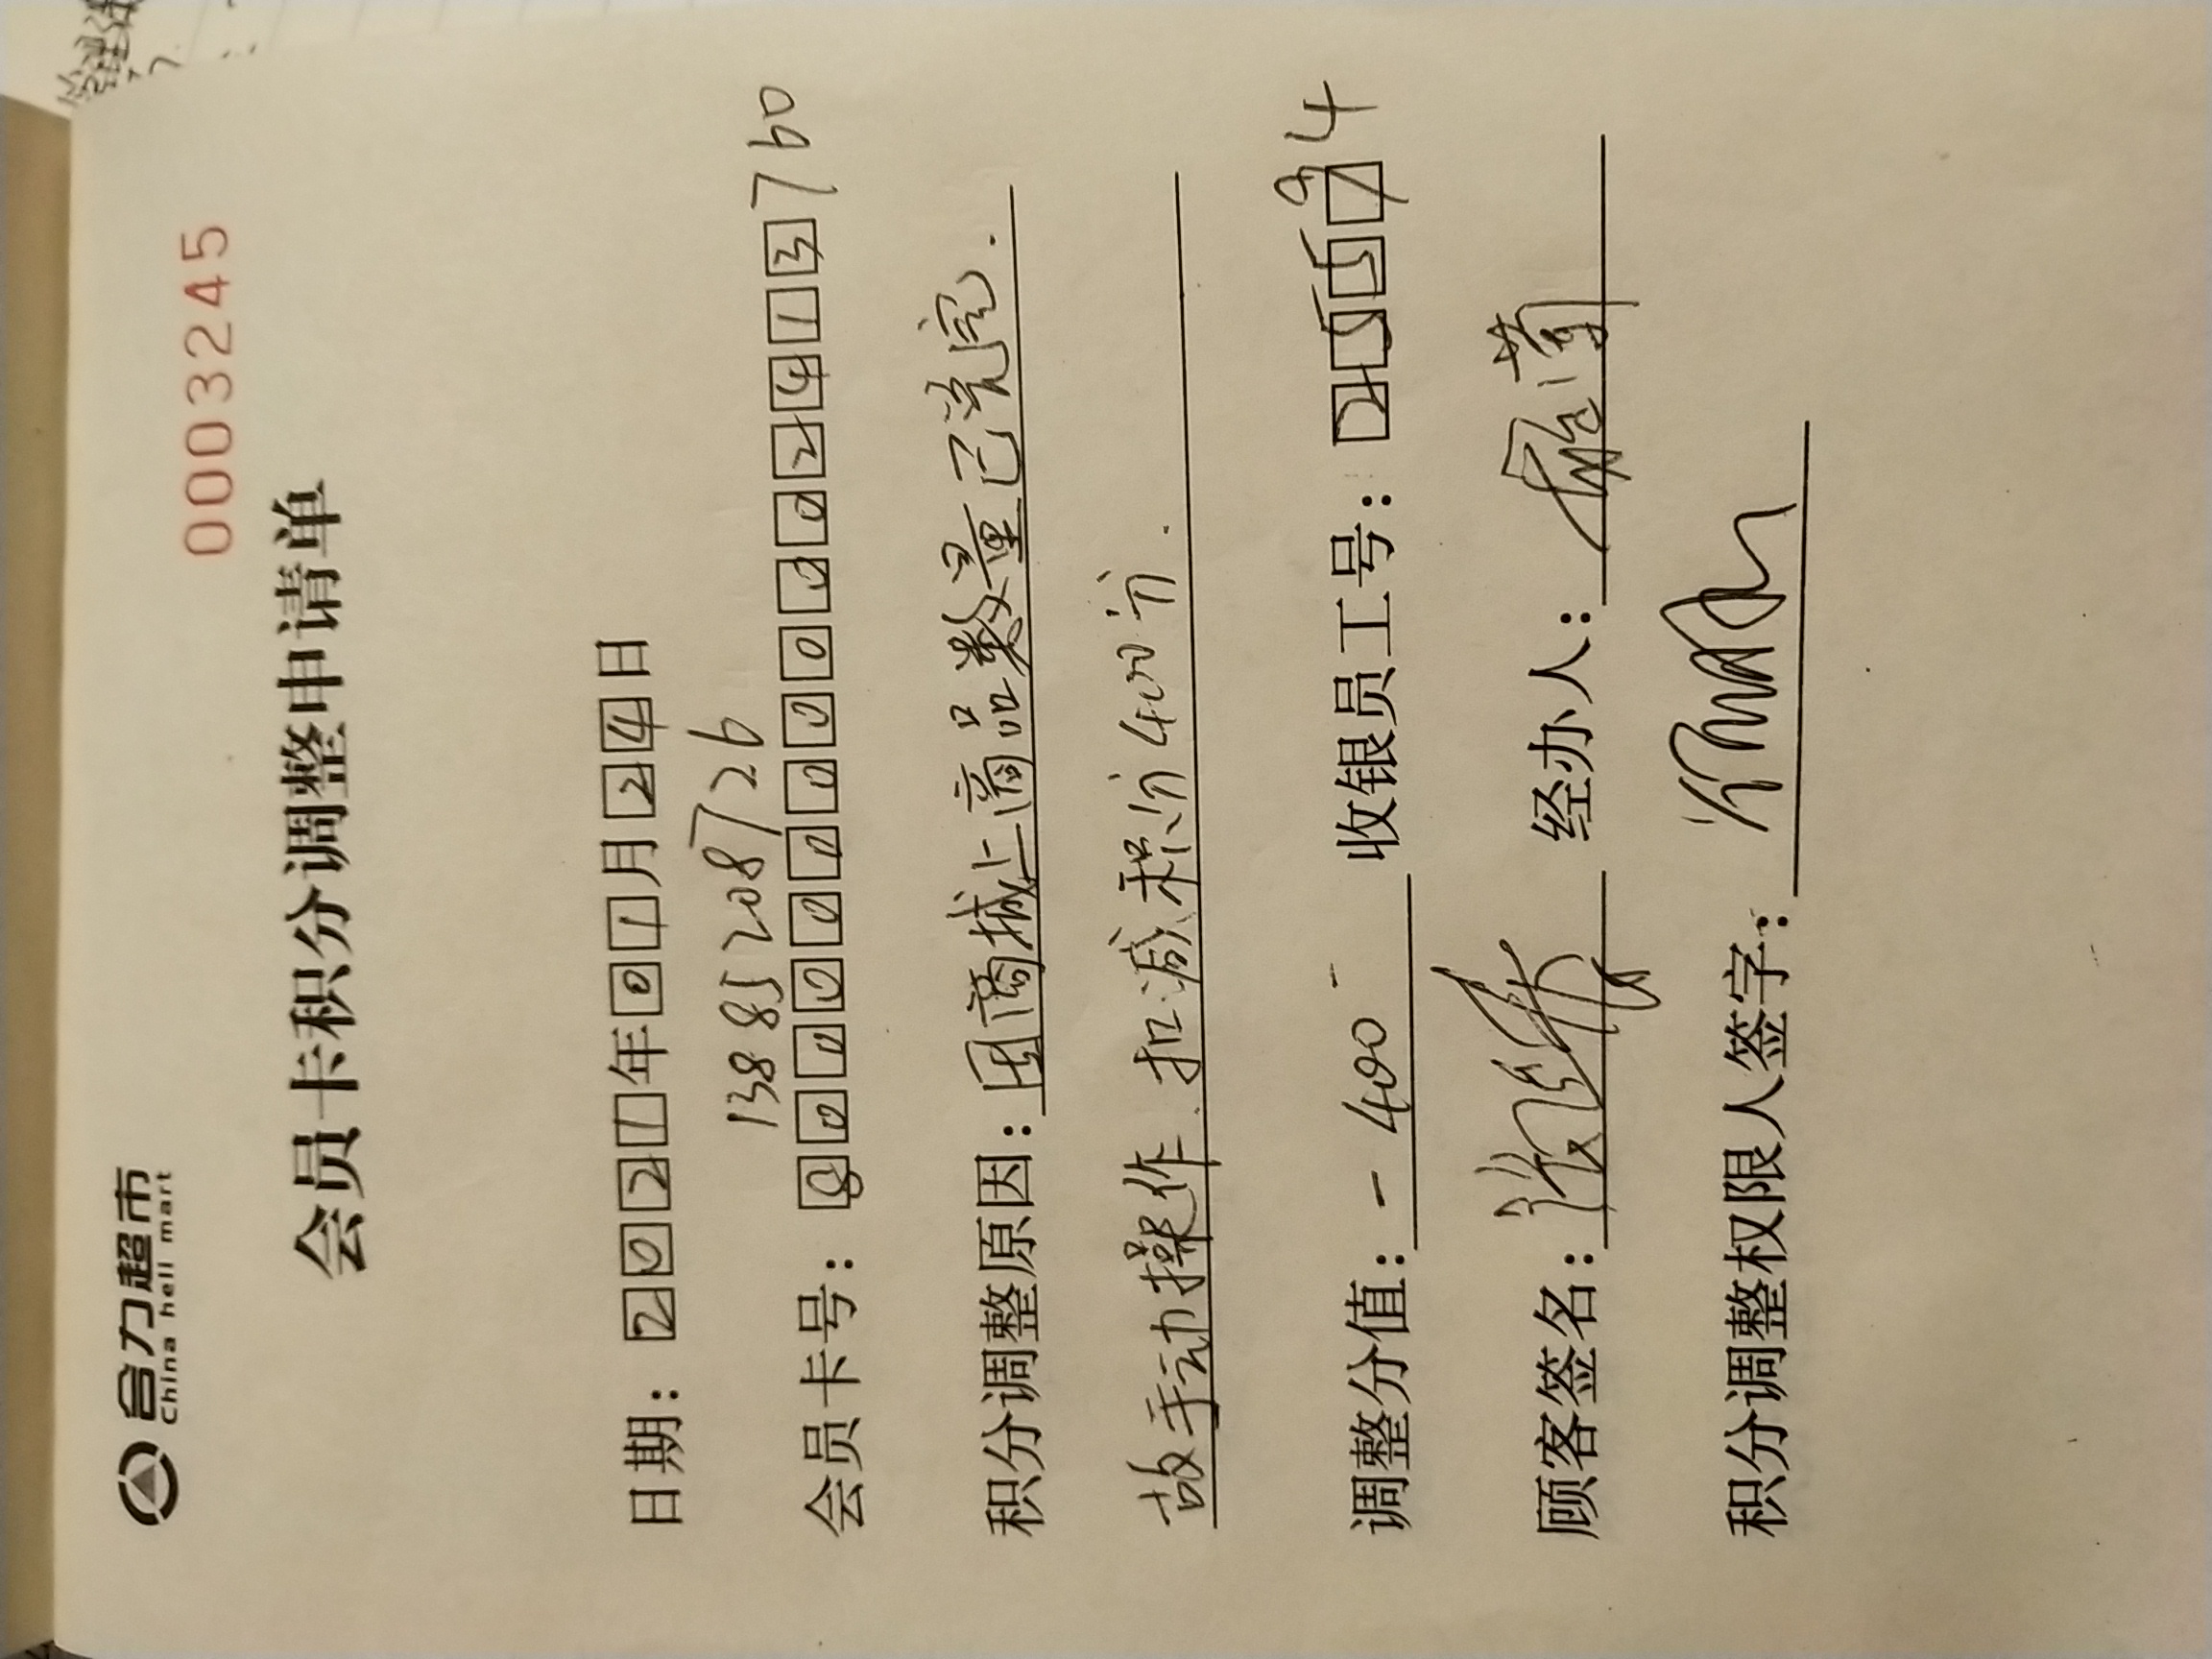 合力超市
China heli mart
0003245
会员卡积分调整申请单
日期：2021年01月24日
13885208726
会员卡号：
积分调整原因：因商城上商品数量已兑完.
故手动操作.扣减积分400分.
调整分值：-400- 收银员工号：
顾客签名： 经办人：
积分调整权限人签字：